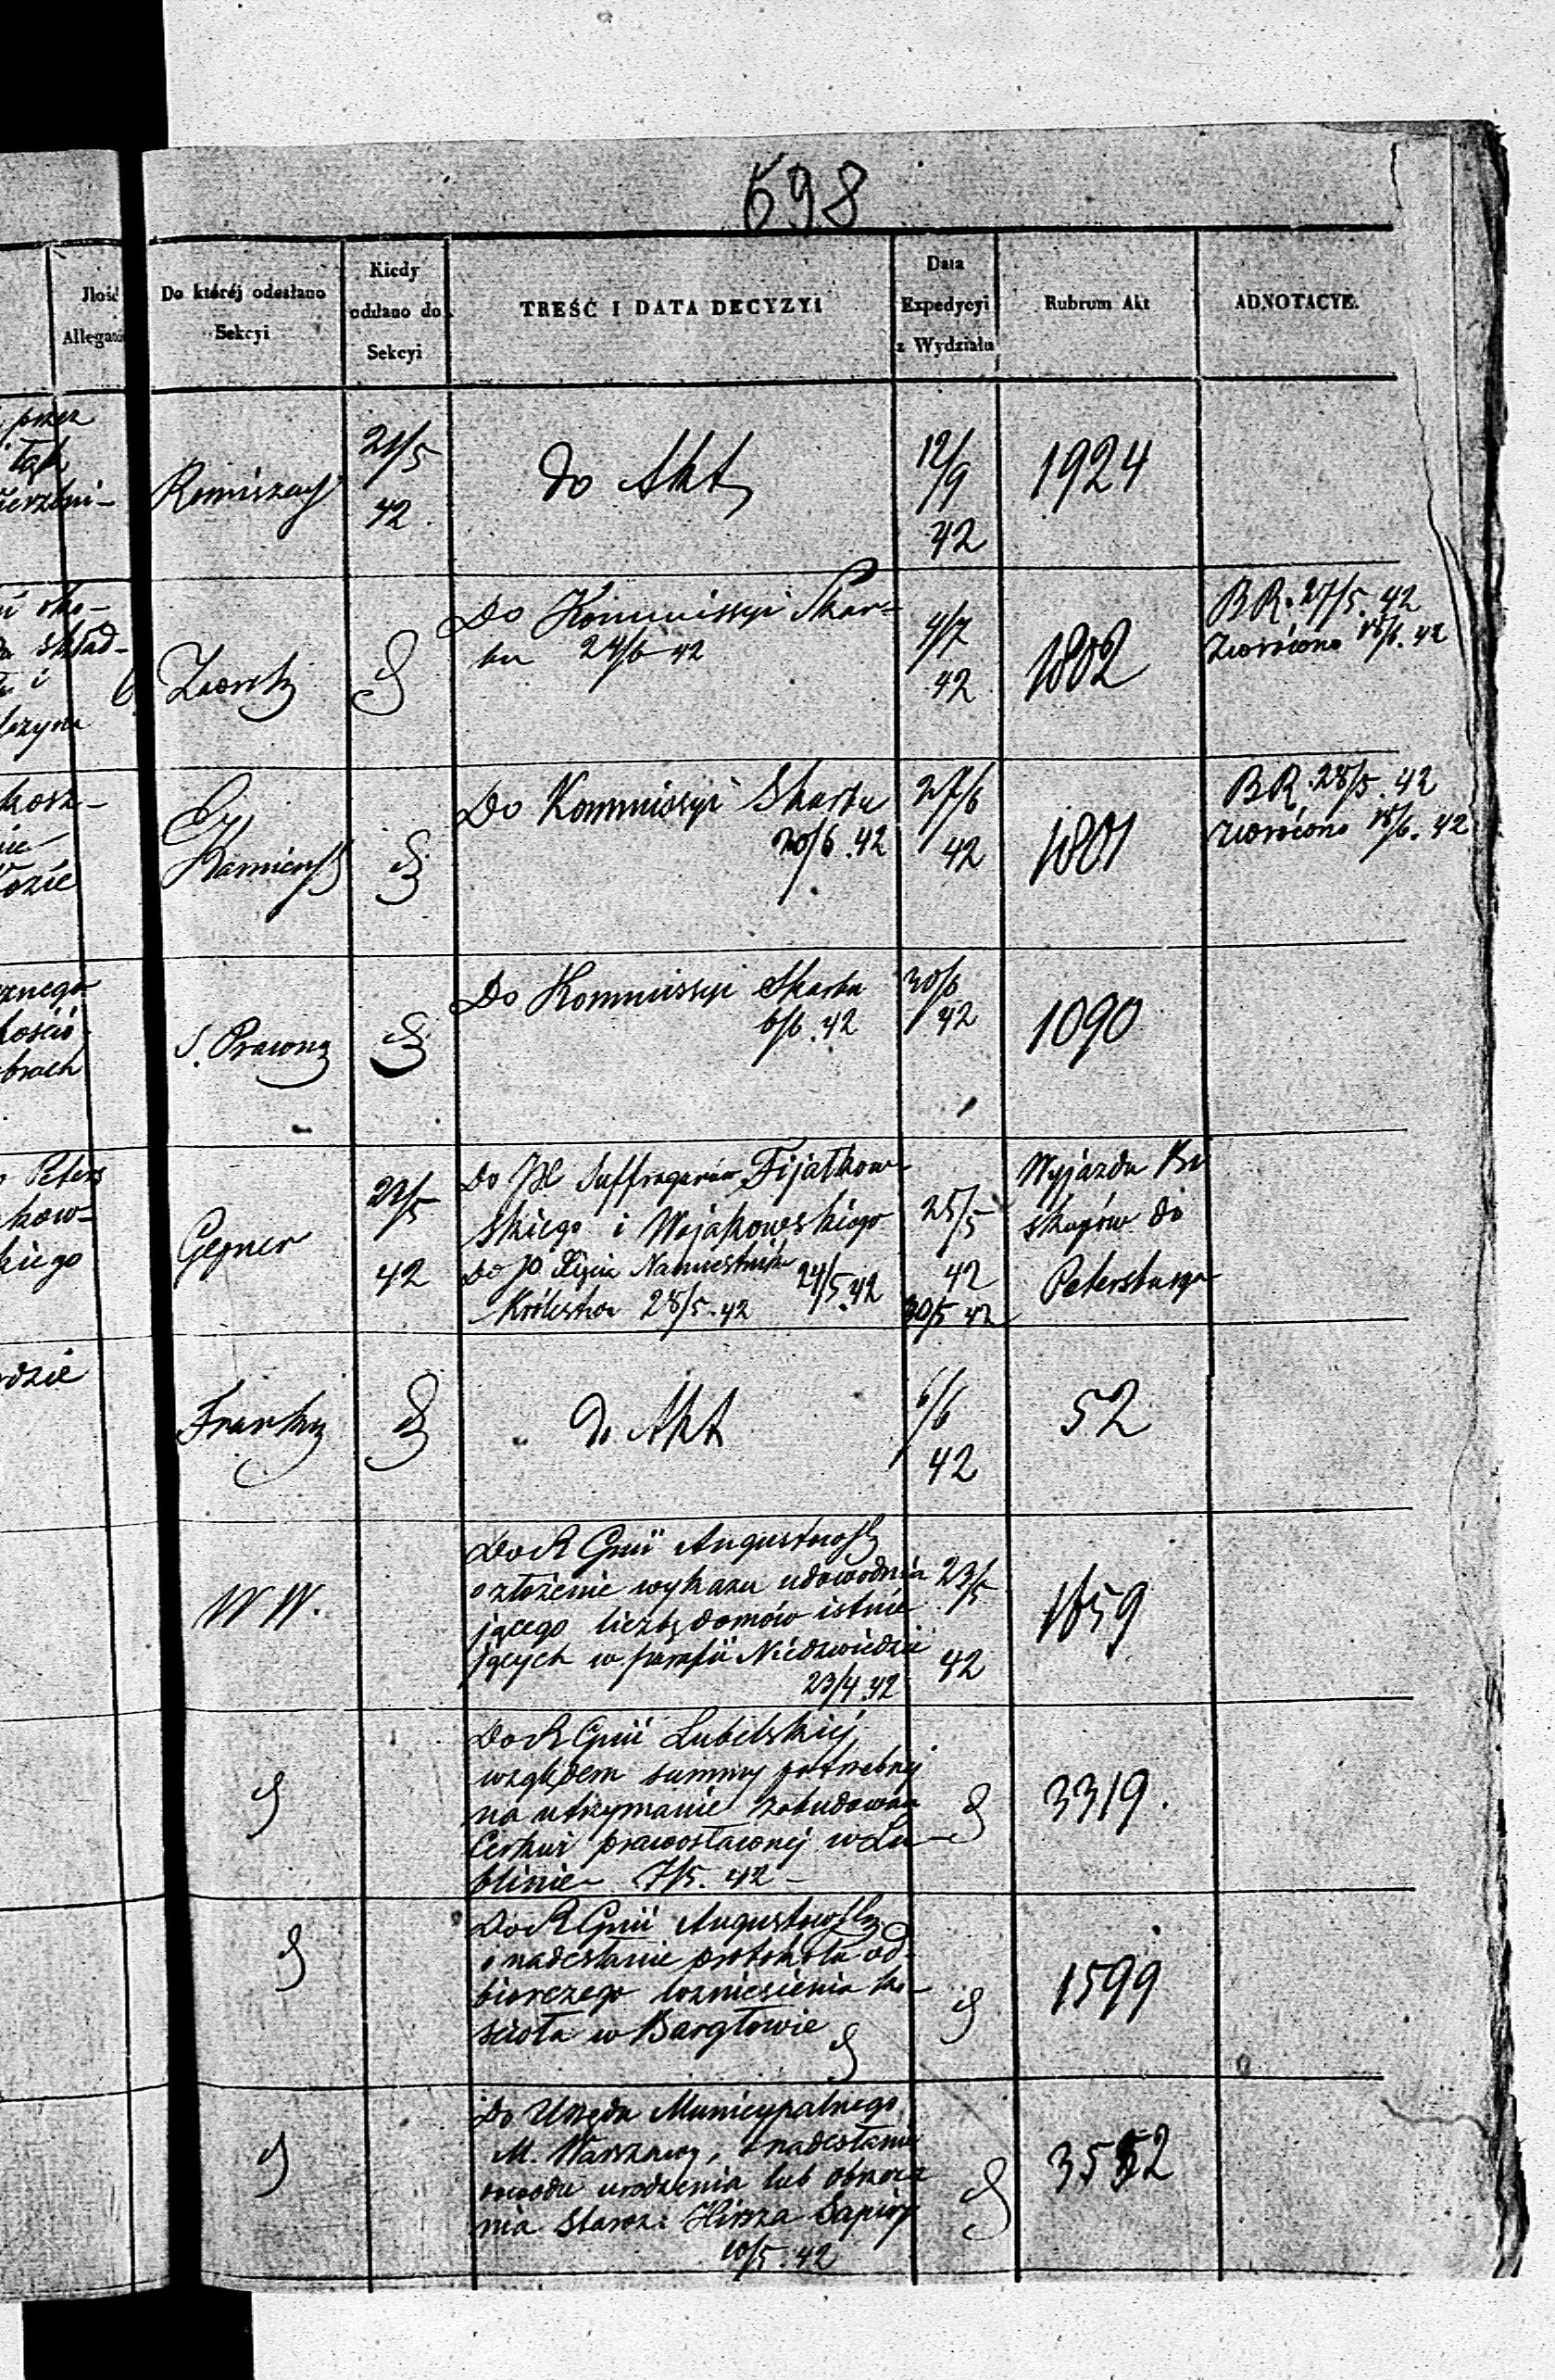 698
Jlość
Allegatów
Do któréj odesłano
Sekcyi
Kiedy
oddano do
Sekcyi
TREŚĆ I DATA DECYZYI
Data
Expedycyi
z Wydziału
Rubrum Akt
ADNOTACYE.
przez
21/5
42
do Akt
12/9
42
1924
skład-
i
Do Kommissyi Skar-
bu 24/6 42
4/7
42
1802
BR. 27/5. 42
zwrócono 15/6. 42
Kamieńs
Do Kommissyi Skarbu
20/6. 42
27/6
42
1801
BR. 28/5. 42
zwrócono 15/6. 42
S. Prawna
Do Kommissyi Skarbu
6/6. 42
30/6
42
1090
Peters
kow-
kiego
Gejner
22/5
42
Do JX Suffraganów Fijałkow-
skiego i Wojakowskiego
24/5. 42
Do JO Xięcia Namiestnika
Królestwa 28/5. 42
25/5
42
30/5 42
Wyjazdu Bi
skupów do
Petersburga
do Akt
6/6
42
52
W W.
Do R Gnii Augustows
o złożenie wykazu udowodnia
jącego liczbę domów istnie
jących w parafii Niedzwiedzie
23/4 42
23/5
42
1659
Do R Gnii Lubelskiej
względem summy potrzebnej
na utrzymanie zabudowań
Cerkwi prawosławnej w Lu-
blinie 7/5. 42
3319.
Do R Gnii Augustows
o nadesłanie protokołu od-
biorczego wzniesienia ko-
scioła w Bargłowie
1599
Do Urzędu Municypalnego
M. Warszawy, o nadesłanie
dowodu urodzenia lub obrzeza
nia Staroz: Hirsza Sapiry
10/5. 42
3552